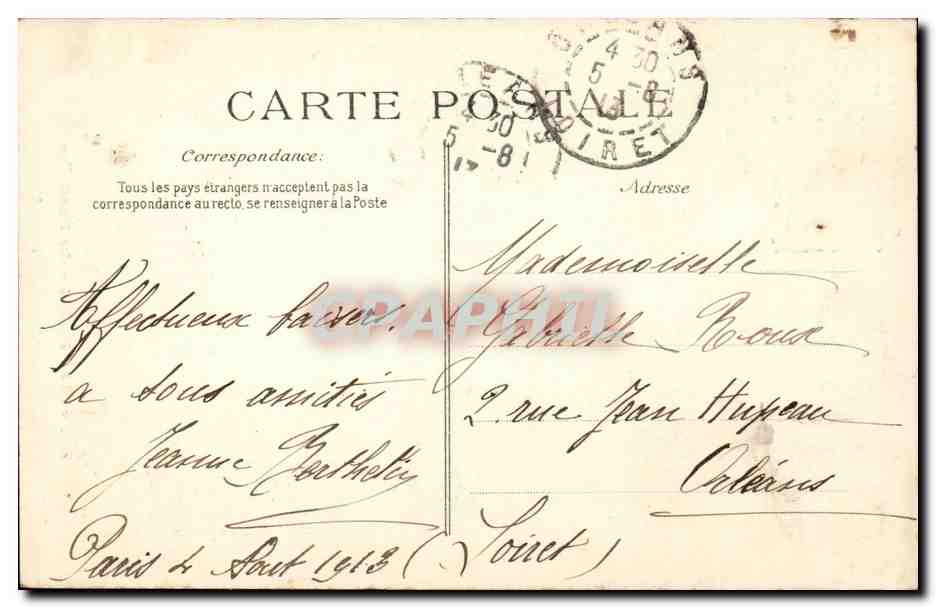 CARTE POSTALE
ORLEANS
4 30
5 -8
13
LOIRET
4 30
5 -8
Correspondance:
Tous les pays étrangers n'acceptent pas la
correspondance au recto, se renseigner à la Poste
Adresse
Affectueux baisers,
a tous amitiés
Jeanne
Paris 4 Aout 1913
Mademoiselle
Gabrielle Roux
2 rue Jean Hupeau
Orléans
(Loiret)
CPAPHIL